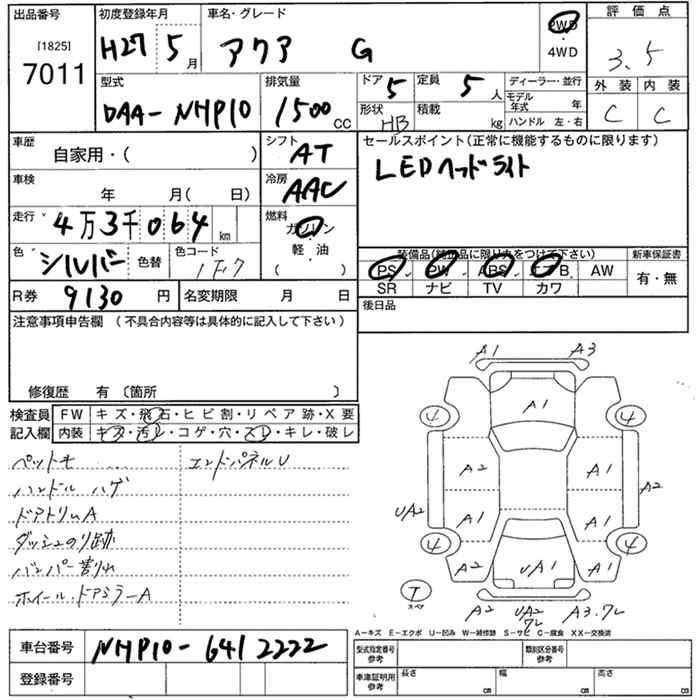 出品番号 初度登録年月 車名・グレード 評価点
[1825] 7011 H27 5月 アクア G 2WD・4WD 3.5
外装 内装
C C
型式 排気量 ドア 定員 ディーラー・並行
DAA-NHP10 1500CC 5 5人 モデル年式 年
形状 積載 ハンドル 左・右
HB kg
車歴 シフト セールスポイント(正常に機能するものに限ります)
自家用・( ) AT LEDヘッドライト
車検 冷房
年 月( 日) AAC
走行 燃料
4万3千064km ガソリン・軽・油( )
色 色替 色コード
シルバー 1F7
装備品(純正品に限り丸をつけて下さい) 新車保証書
PS PW ABS エアB AW 有・無
SR ナビ TV カワ
R券 9130円 名変期限 月 日
後日品
注意事項申告欄(不具合内容等は具体的に記入して下さい)
修復歴 有〔箇所 〕
検査員記入欄 FW キズ・飛石・ヒビ割・リペア跡・X要
内装 キズ・汚レ・コゲ・穴・スレ・キレ・破レ
エンドパネルU
ハンドルハゲ
ドアトリムA
ダッシュのり跡
バンパー割れ
ホイール・ドアミラーA
A1 A3
A1
4 4
A2 A1
UA2 A2
A1 A1
4 4
A2 UA1 A1
T
スペア
A2 UA2 7L A3.7L
A-キズ E-エクボ U-凹み W-補修跡 S-サビ C-腐食 XX-交換済
車台番号 NHP10-6412222
登録番号
型式指定番号 参考 類別区分番号 参考
車庫証明用 参考 長さ cm 幅 cm 高さ cm